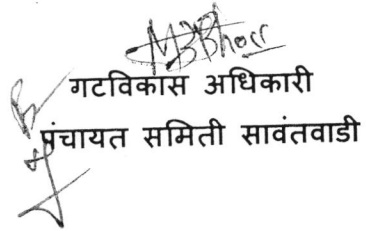 गटविकास अधिकारी
पंचायत समिती सावंतवाडी